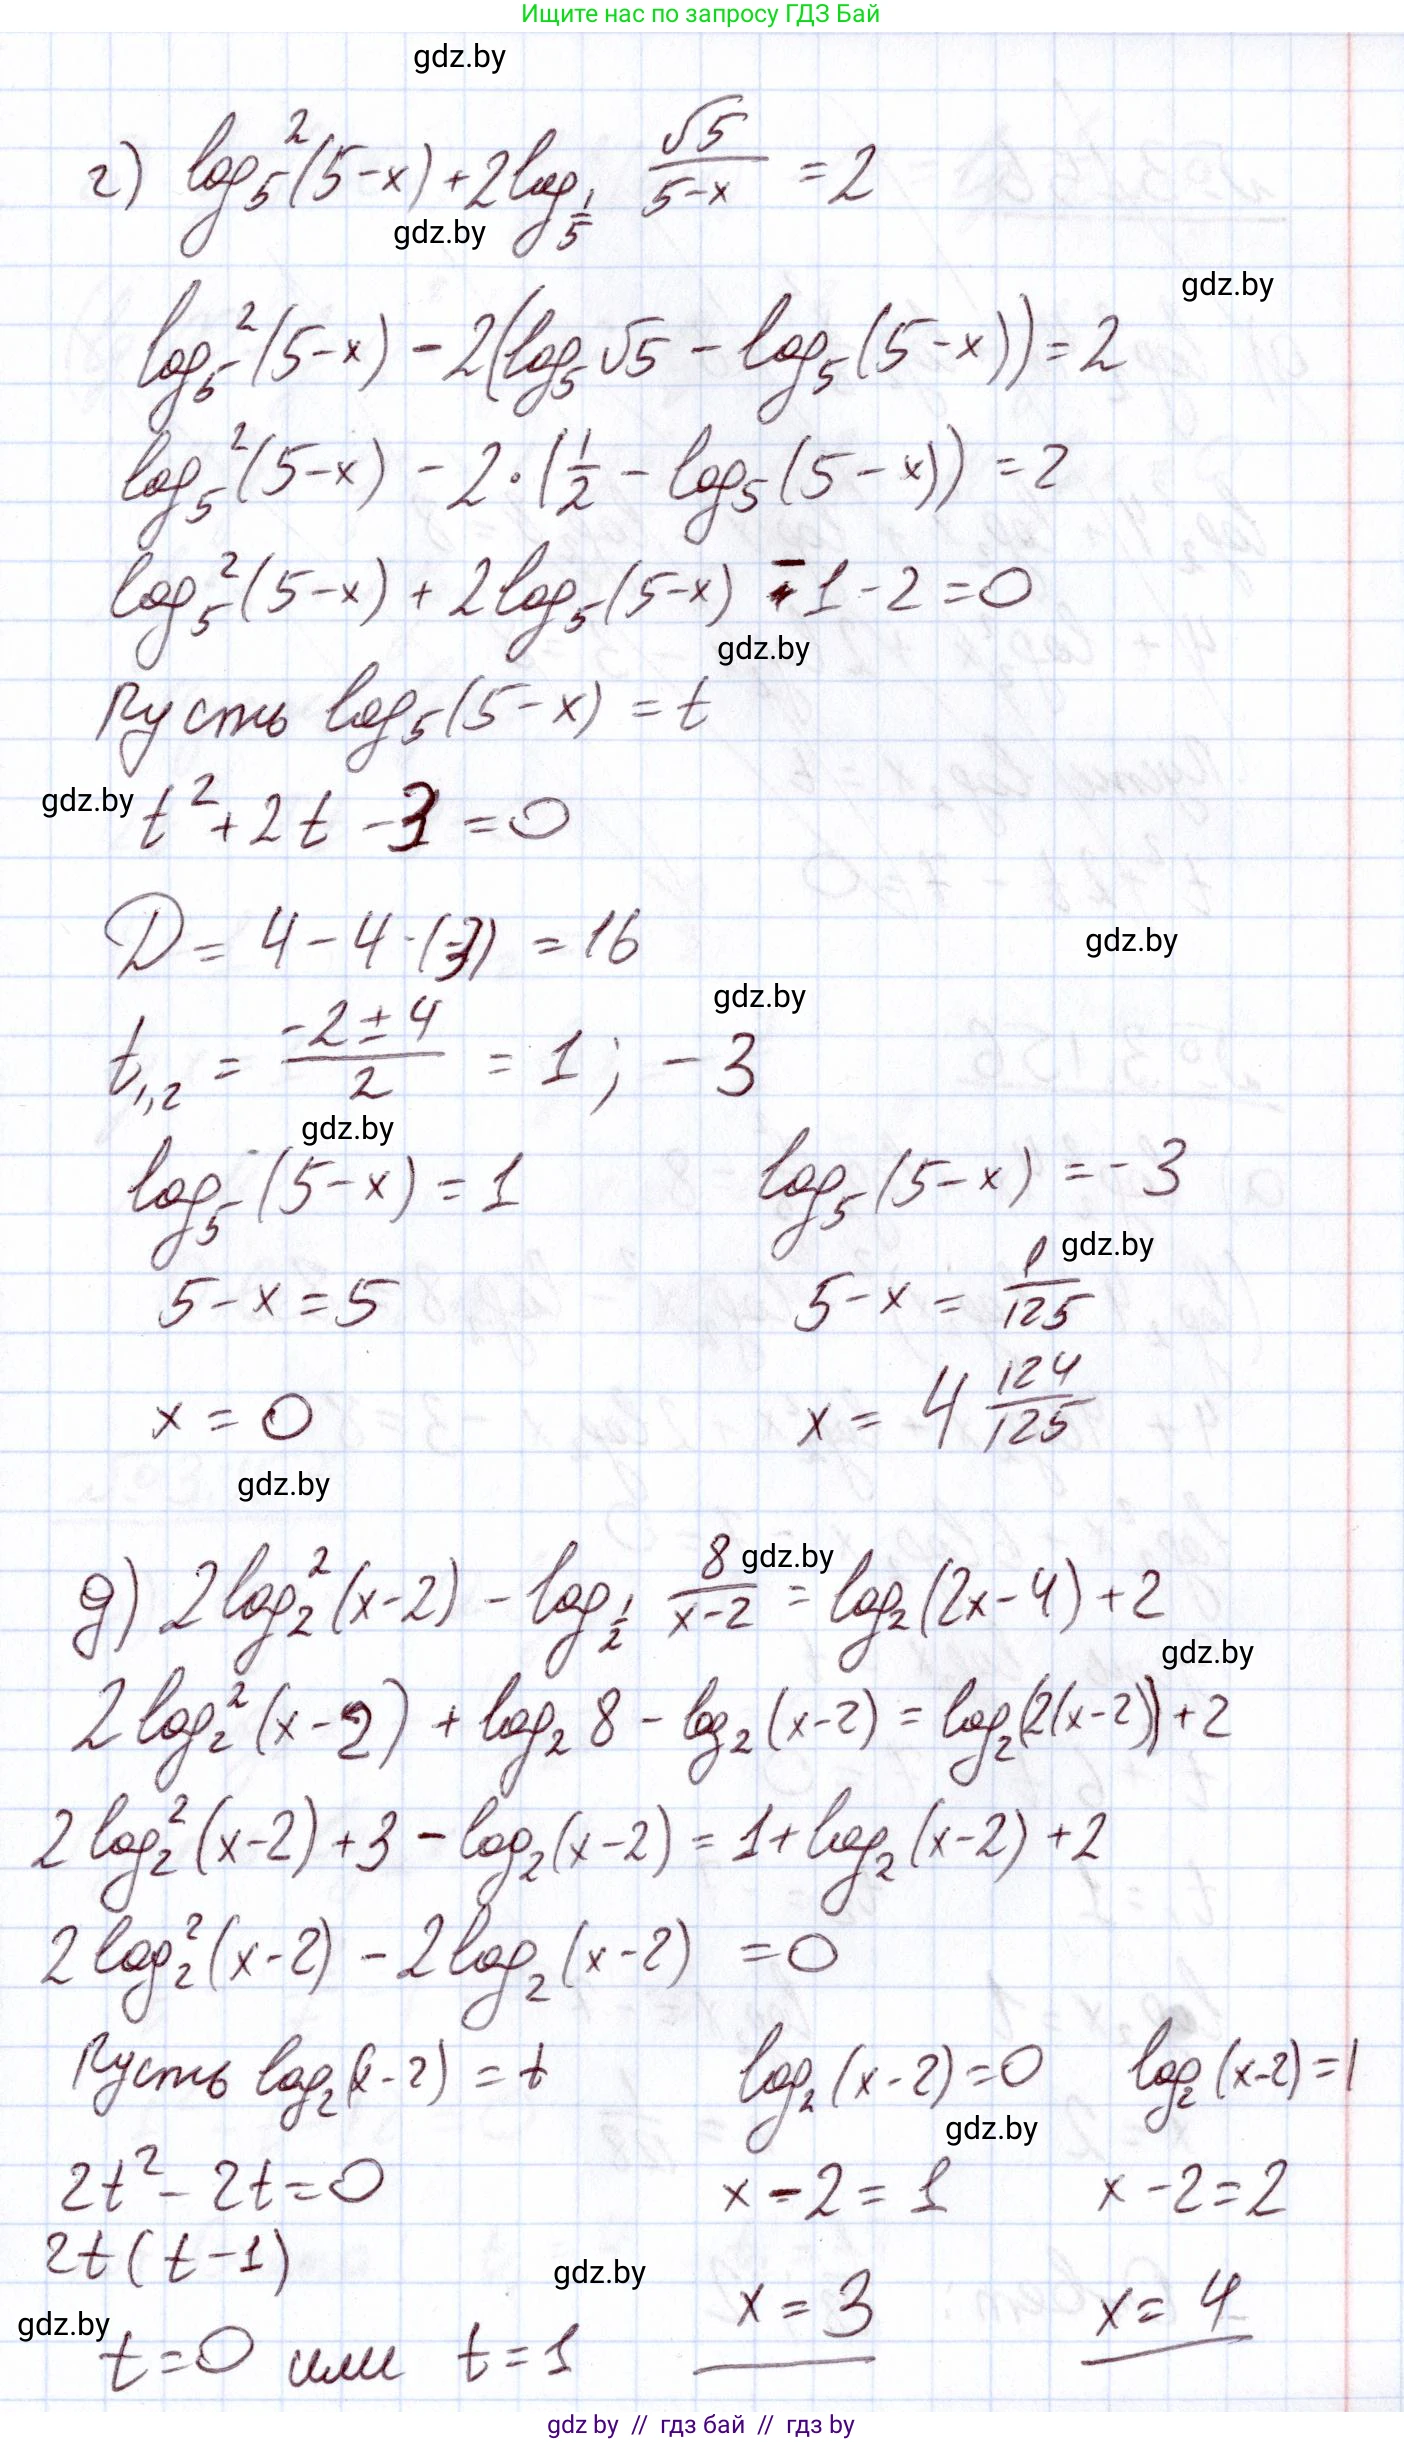 Ищите нас по запросу ГДЗ Бай
gdz.by
г) log₅²(5-x) + 2log_{1/5} √5/(5-x) = 2
gdz.by
gdz.by
log₅²(5-x) - 2(log₅√5 - log₅(5-x)) = 2
log₅²(5-x) - 2·(1/2 - log₅(5-x)) = 2
log₅²(5-x) + 2log₅(5-x) - 1 - 2 = 0
gdz.by
Пусть log₅(5-x) = t
gdz.by
t² + 2t - 3 = 0
D = 4 - 4·(-3) = 16
gdz.by
gdz.by
t₁,₂ = (-2±4)/2 = 1; -3
gdz.by
log₅(5-x) = 1    log₅(5-x) = -3
gdz.by
5-x = 5    5-x = 1/125
x = 0    x = 4 124/125
gdz.by
д) 2log₂²(x-2) - log_{1/2} 8/(x-2) = log₂(2x-4) + 2
gdz.by
gdz.by
2log₂²(x-2) + log₂8 - log₂(x-2) = log₂(2(x-2)) + 2
2log₂²(x-2) + 3 - log₂(x-2) = 1 + log₂(x-2) + 2
2log₂²(x-2) - 2log₂(x-2) = 0
Пусть log₂(x-2) = t    log₂(x-2) = 0    log₂(x-2) = 1
gdz.by
2t² - 2t = 0    x - 2 = 1    x - 2 = 2
2t(t-1)
gdz.by
x = 3    x = 4
gdz.by
t = 0 или t = 1
gdz by // гдз бай // гдз by